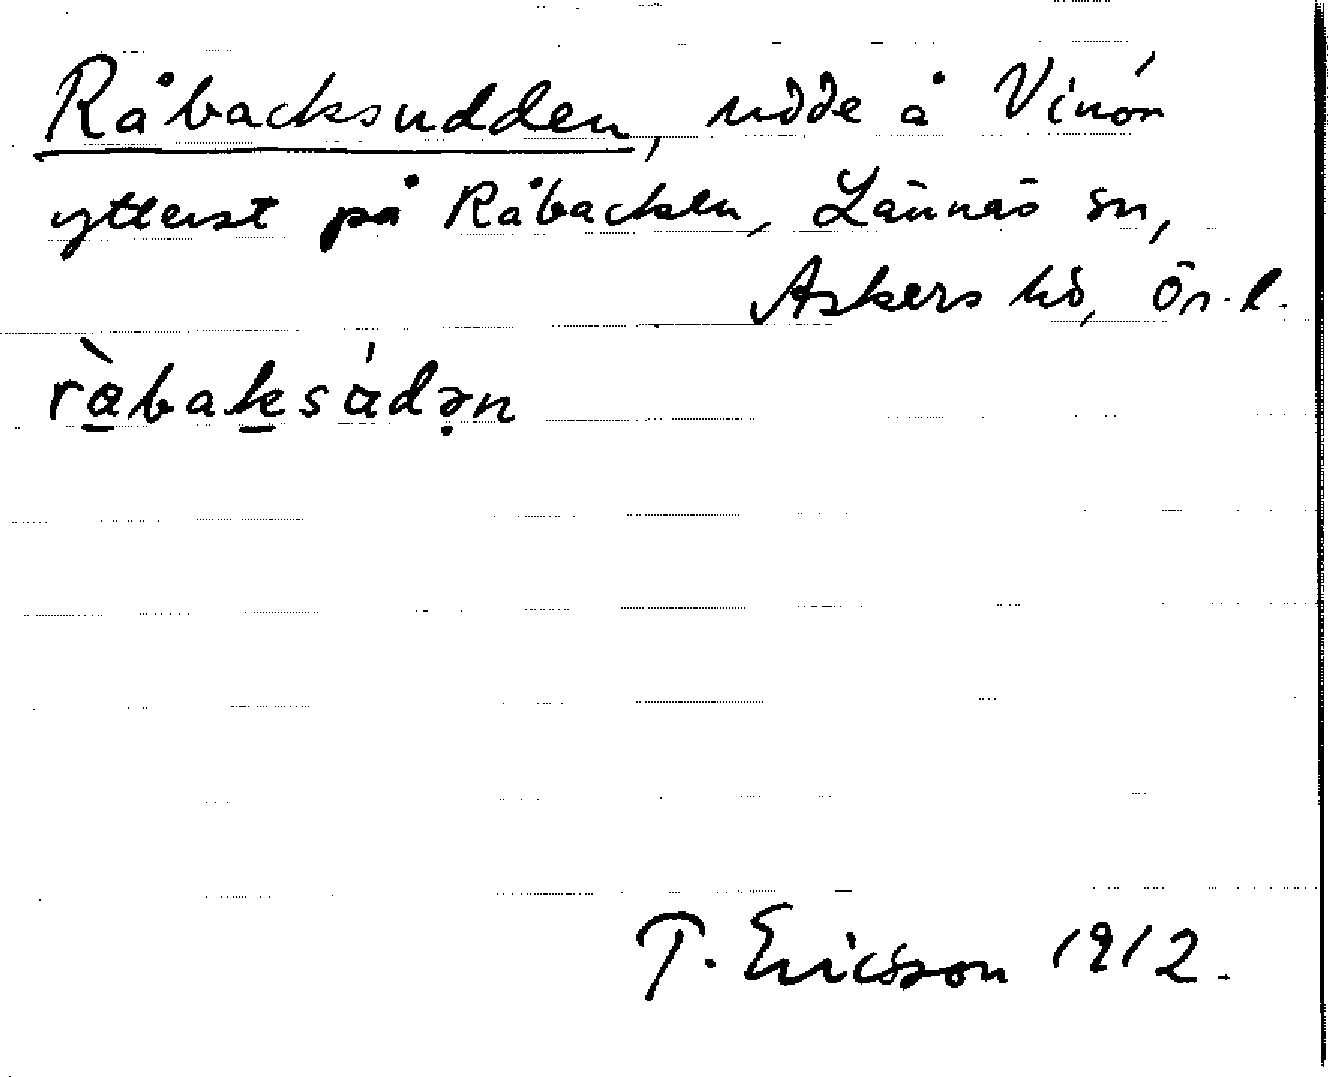 Råbacksudden, udde å Vinön
ytterst på Råbacken, Lännäs sn,
Askers hd, Ör. l.
ràbaksádən
T. Ericsson 1912.